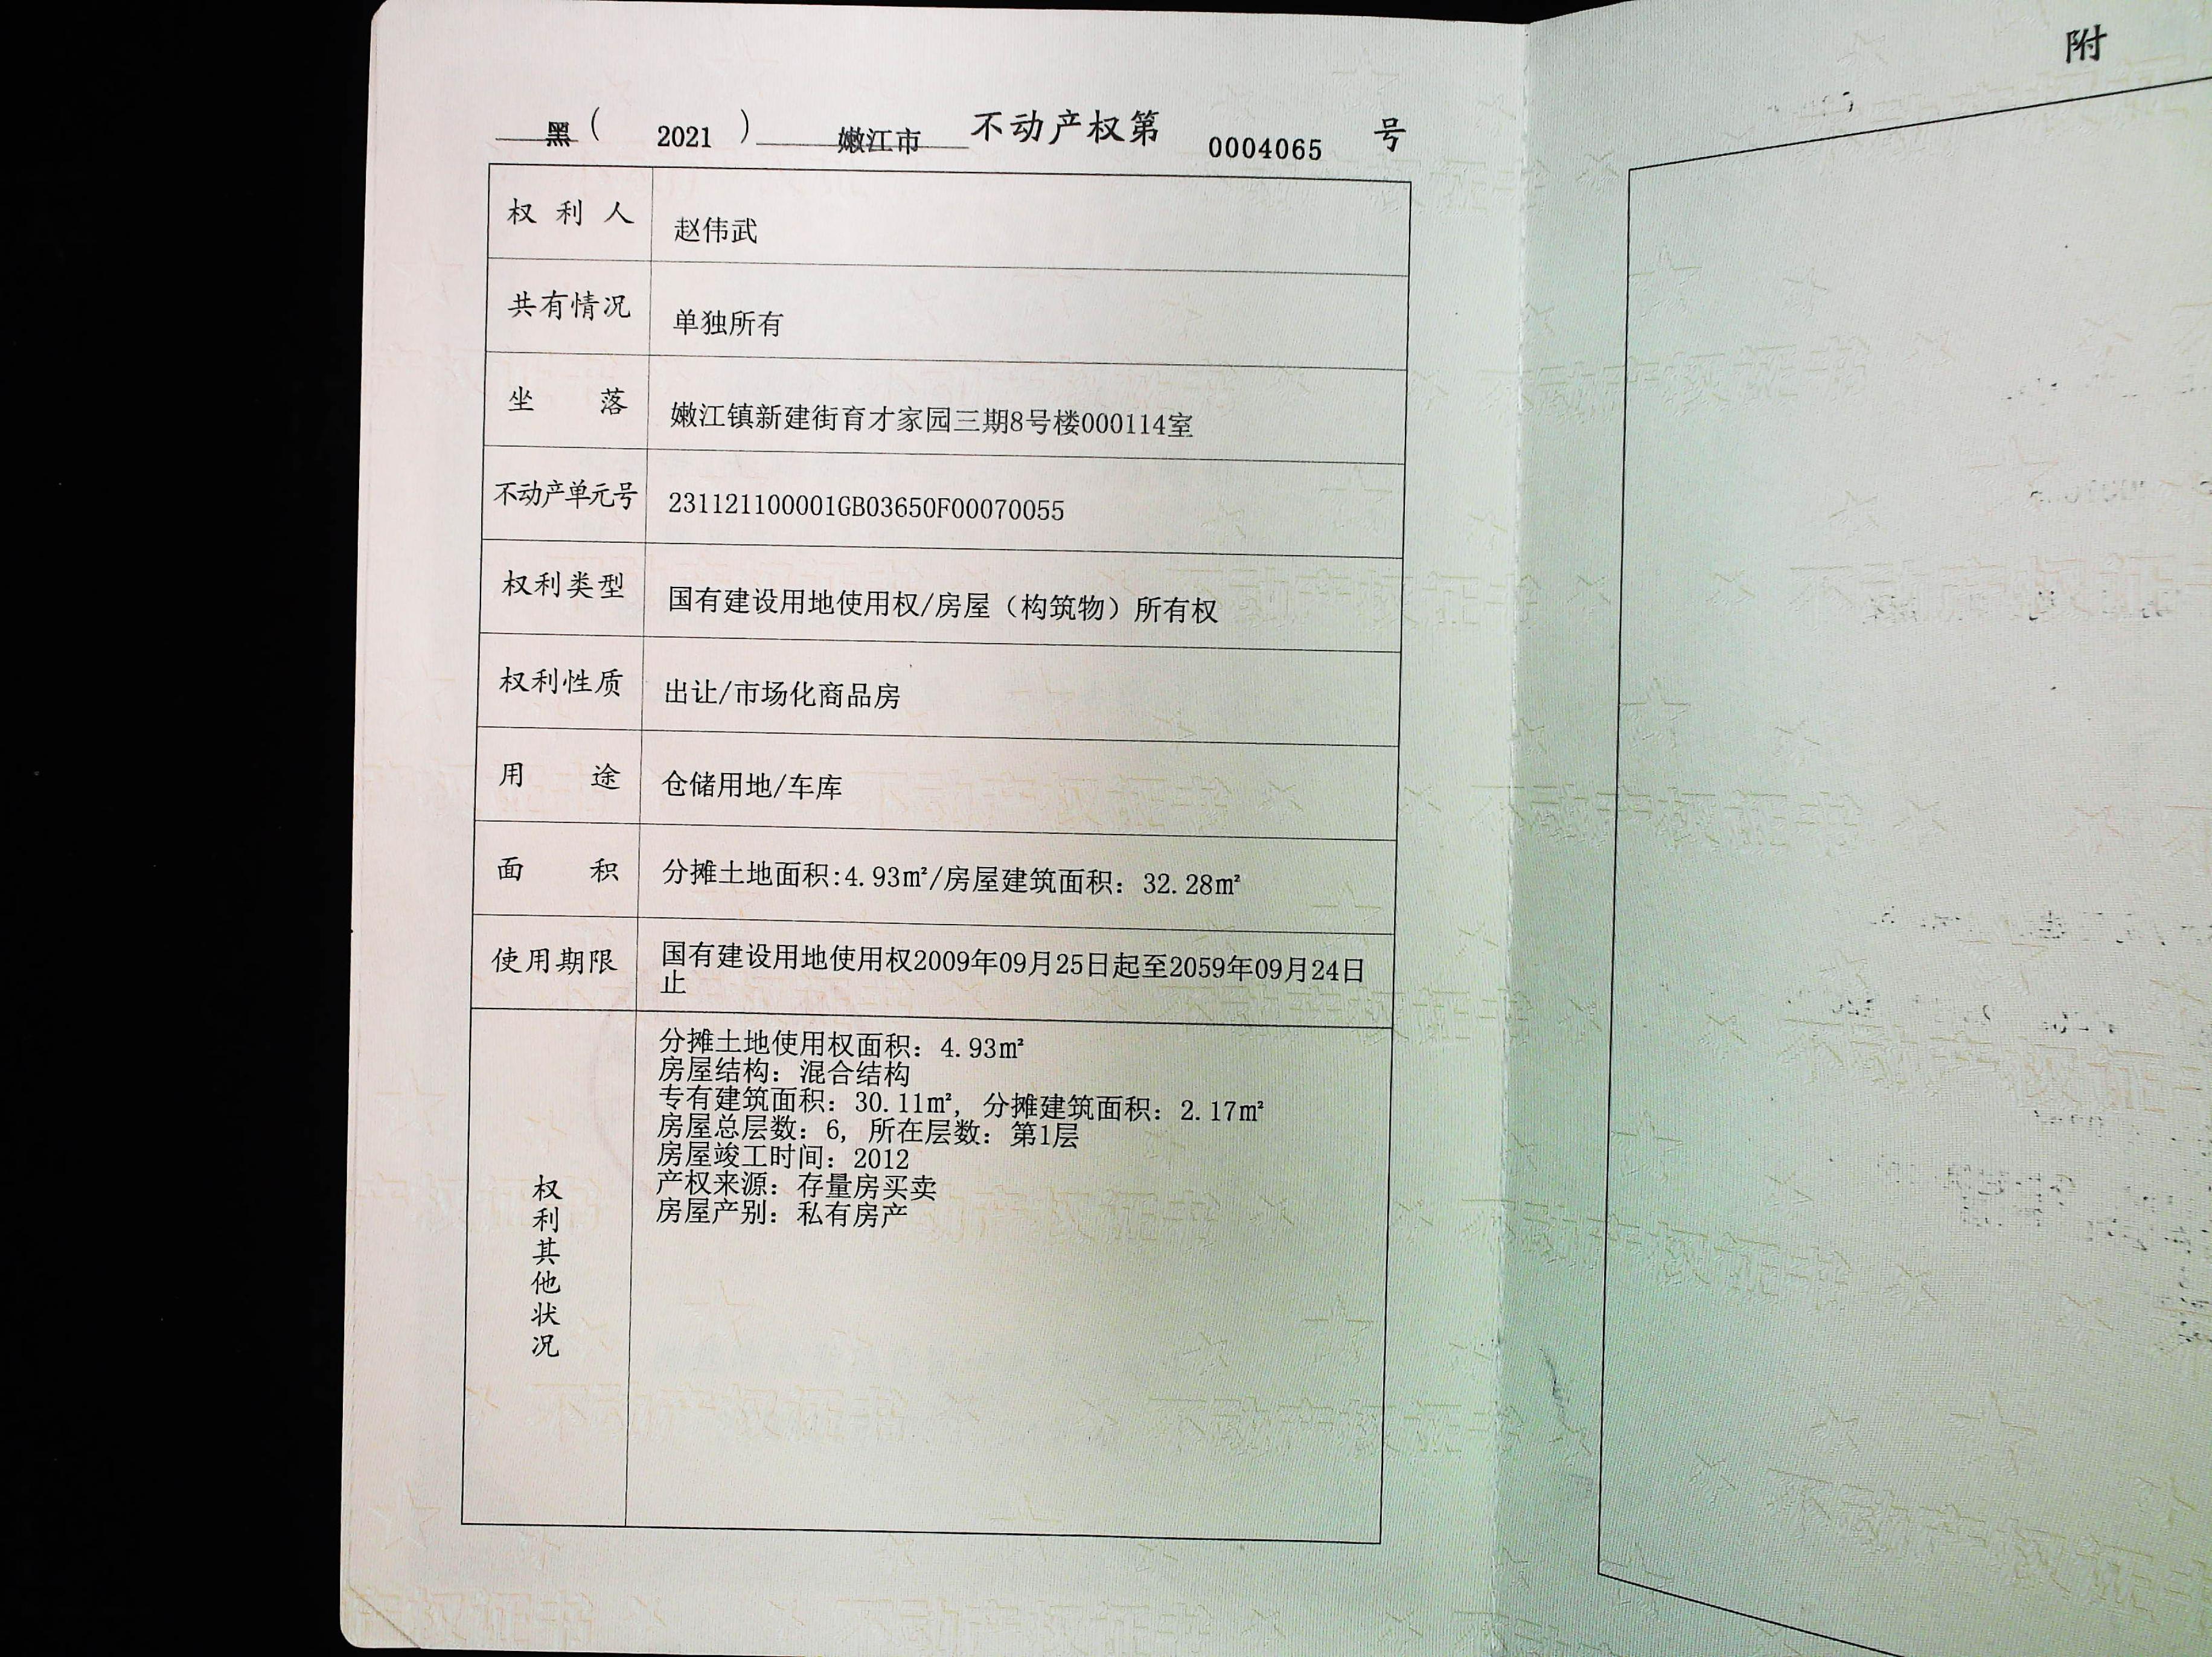 黑 ( 2021 ) 嫩江市 不动产权第 0004065 号
权利人 赵伟武
共有情况 单独所有
坐落 嫩江镇新建街育才家园三期8号楼000114室
不动产单元号 231121100001GB03650F00070055
权利类型 国有建设用地使用权/房屋（构筑物）所有权
权利性质 出让/市场化商品房
用途 仓储用地/车库
面积 分摊土地面积:4.93㎡/房屋建筑面积：32.28㎡
使用期限 国有建设用地使用权2009年09月25日起至2059年09月24日
止
权利其他状况
分摊土地使用权面积：4.93㎡
房屋结构：混合结构
专有建筑面积：30.11㎡, 分摊建筑面积：2.17㎡
房屋总层数：6, 所在层数：第1层
房屋竣工时间：2012
产权来源：存量房买卖
房屋产别：私有房产
附